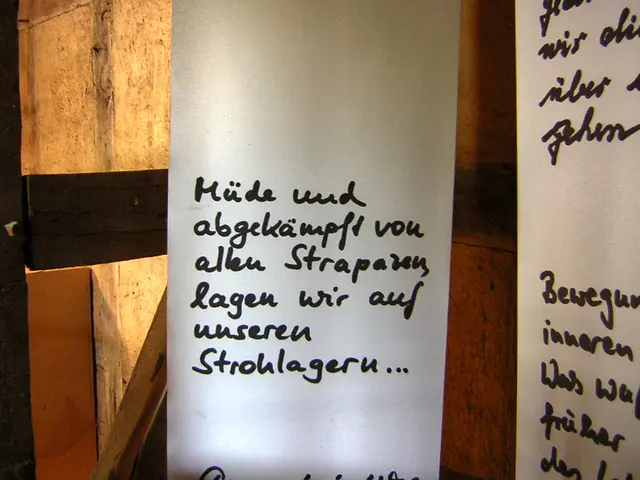 Müde und
abgekämpft von
allen Strapazen,
lagen wir auf
unseren
Strohlagern...
wir die
über
gehen
inneren
Was
früher